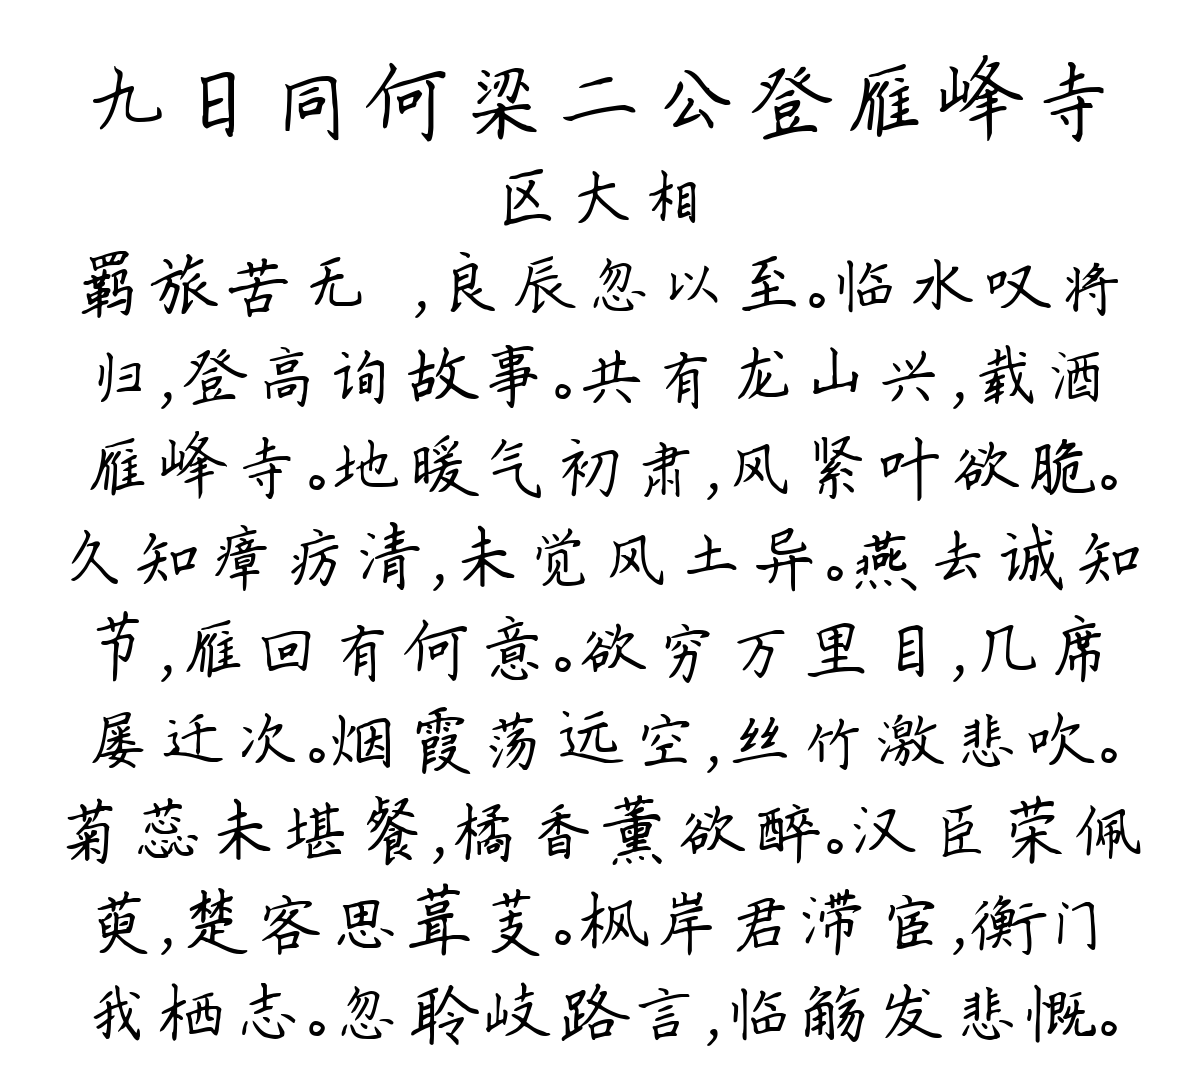 九日同何梁二公登雁峰寺
区大相
羁旅苦无 ,良辰忽以至。临水叹将
归,登高询故事。共有龙山兴,载酒
雁峰寺。地暖气初肃,风紧叶欲脆。
久知瘴疠清,未觉风土异。燕去诚知
节,雁回有何意。欲穷万里目,几席
屡迁次。烟霞荡远空,丝竹激悲吹。
菊蕊未堪餐,橘香薰欲醉。汉臣荣佩
萸,楚客思葺芰。枫岸君滞宦,衡门
我栖志。忽聆岐路言,临觞发悲慨。